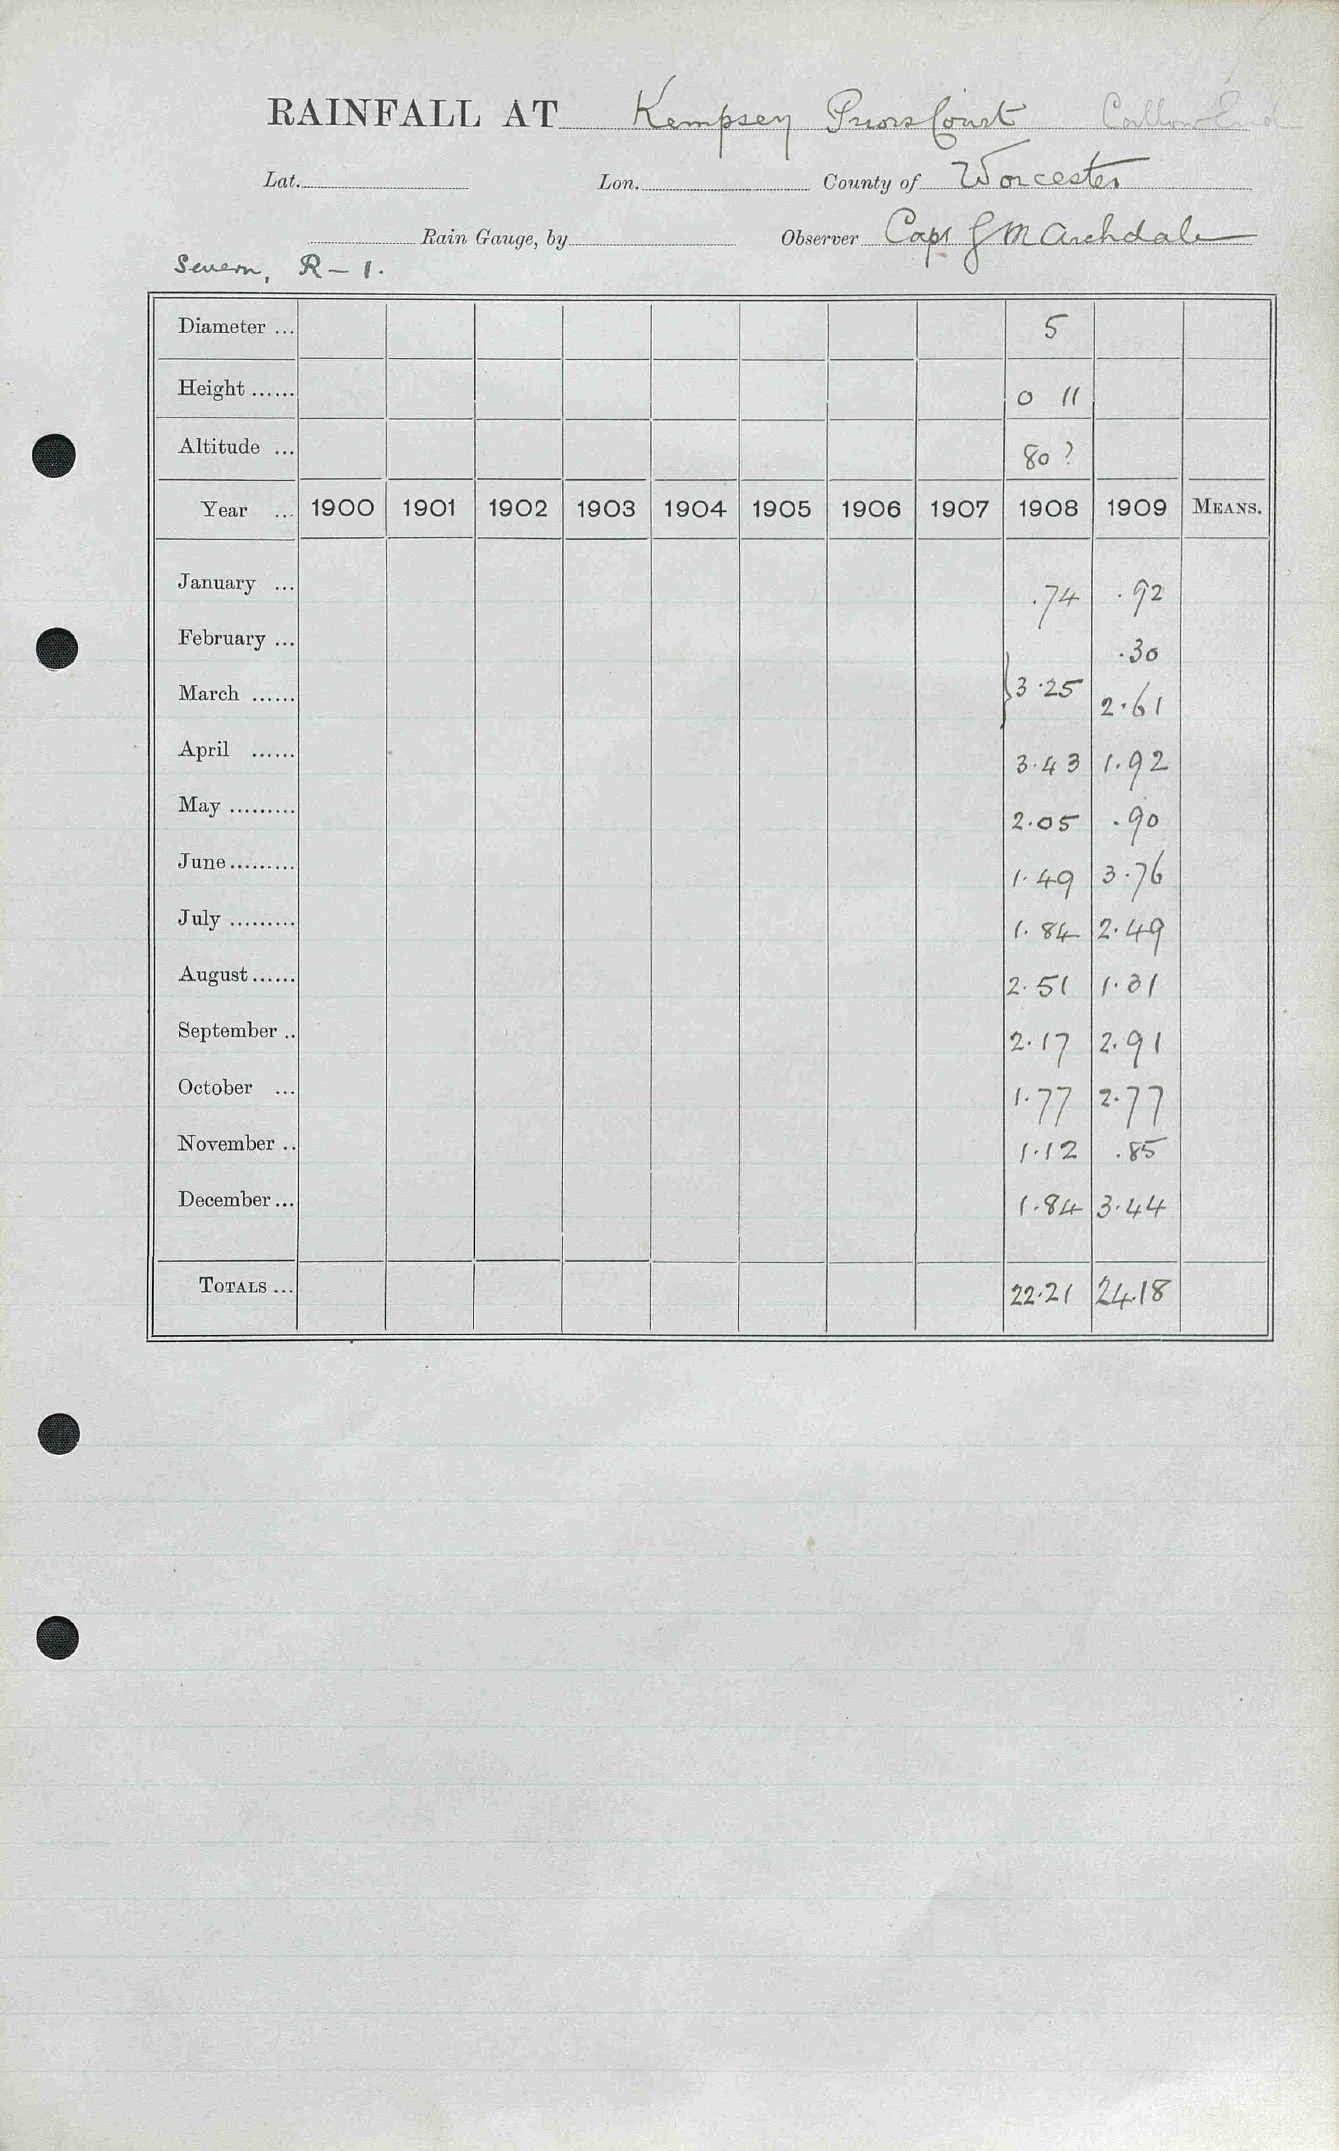 RAINFALL AT Kempsey Priors Court Callow End
Lat. Lon. County of Worcester
Rain Gauge, by Observer Capt G M Archdale
Severn, R – 1.
Diameter ... 5
Height ...... 0 11
Altitude ... 80 ?
Year ... 1900 1901 1902 1903 1904 1905 1906 1907 1908 1909 MEANS.
January ... .74 .92
February ... .30
March ...... } 3.25 2.61
April ...... 3.43 1.92
May ......... 2.05 .90
June ......... 1.49 3.76
July ......... 1.84 2.49
August ...... 2.51 1.31
September .. 2.17 2.91
October ... 1.77 2.77
November .. 1.12 .85
December ... 1.84 3.44
TOTALS ... 22.21 24.18